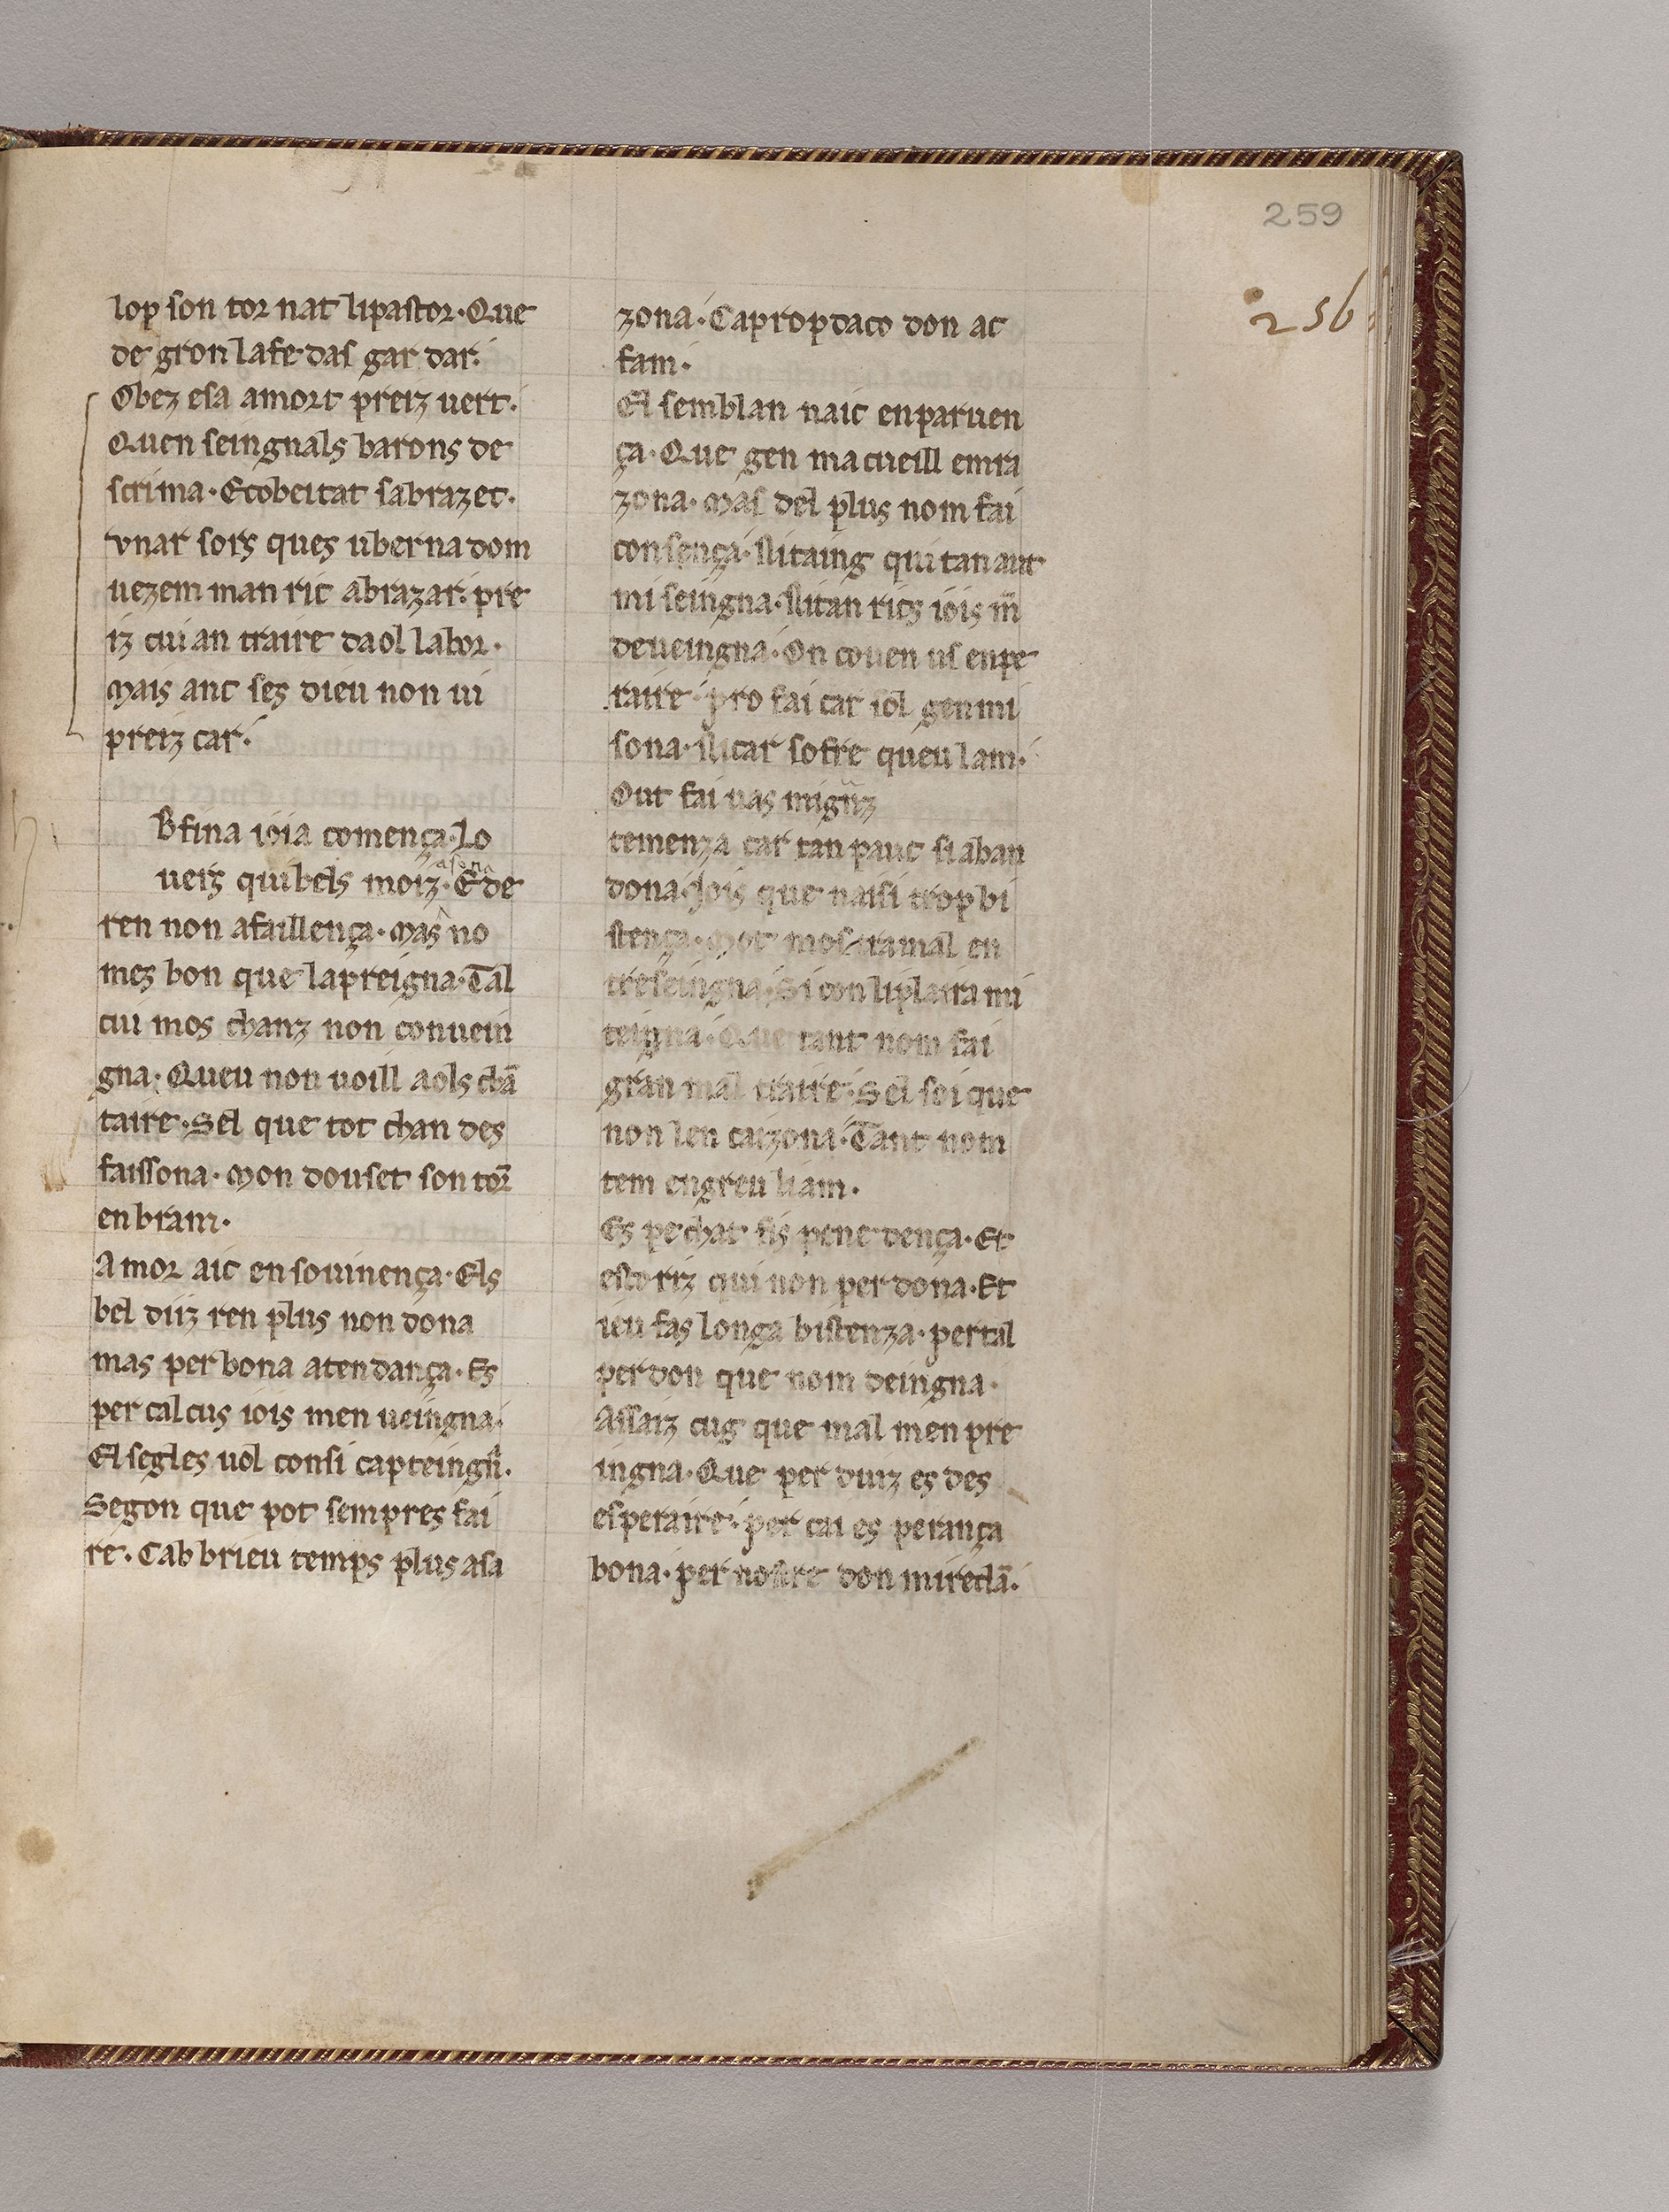 259
256
lop son tor nat lipastor·Que
de gron lafe das gar dar.
Obez esa amort preiz uert·
Quen seingnals barons de
scrima·Etobeitat sabrazet·
vnar sors ques uberna dom
uezem man ric abrazar·pre
iz cui an traire daol labor·
Mais anc ses dieu non ui
preiz car·
B fina ioia comença·Lo
asona
uers qui bels moiz·E de
ren non afaillença·Mas no
mes bon que lapreigna·Tal
cui mos chanz non conuein
gna·Queu non uoill aols chā
taire·Sel que tot chan des
faissona·Mon douset son tor̄
en bram·
Amor aic ensouinença·Els
bel diiz ren plus non dona
mas per bona aten dança·Es
per calcus iois men ueingna·
El segles uol consi capteingn̄·
Segon que pot sempres fai
re·Cab brieu temps plus asa
zona·Caprop daco don ac
fam·
El semblan naic enparuen
ça·Que gen macueill emra
zona·Mas del plus nom fai
consença·Nitaing qui tan aut
mi seingna·Nitan rics iois m̄
deueingna·On couen us enpe
raire·pro fai car iol gen mi
sona·Nicar sofre queu lam·
Out fai uas
temenza car tan pauc si aban
dona·Jois que naisi trop bi
stença·Mot mostra mal en
treseingna·Si con liplaira mi
teigna·Que tant nom fai
gran mal traire·Sel soi que
non len caizona·Tant nom
tem engreu liam·
Es pe chat fis pene dença·Et
es torz qui non per dona·Et
ieu fas longa bistenza·per tal
perdon que nom deingna·
Assaiz cug que mal men pre
ingna·Que per duiz es des
esperaire·per cai es perança
bona·per nostre don mireclā·